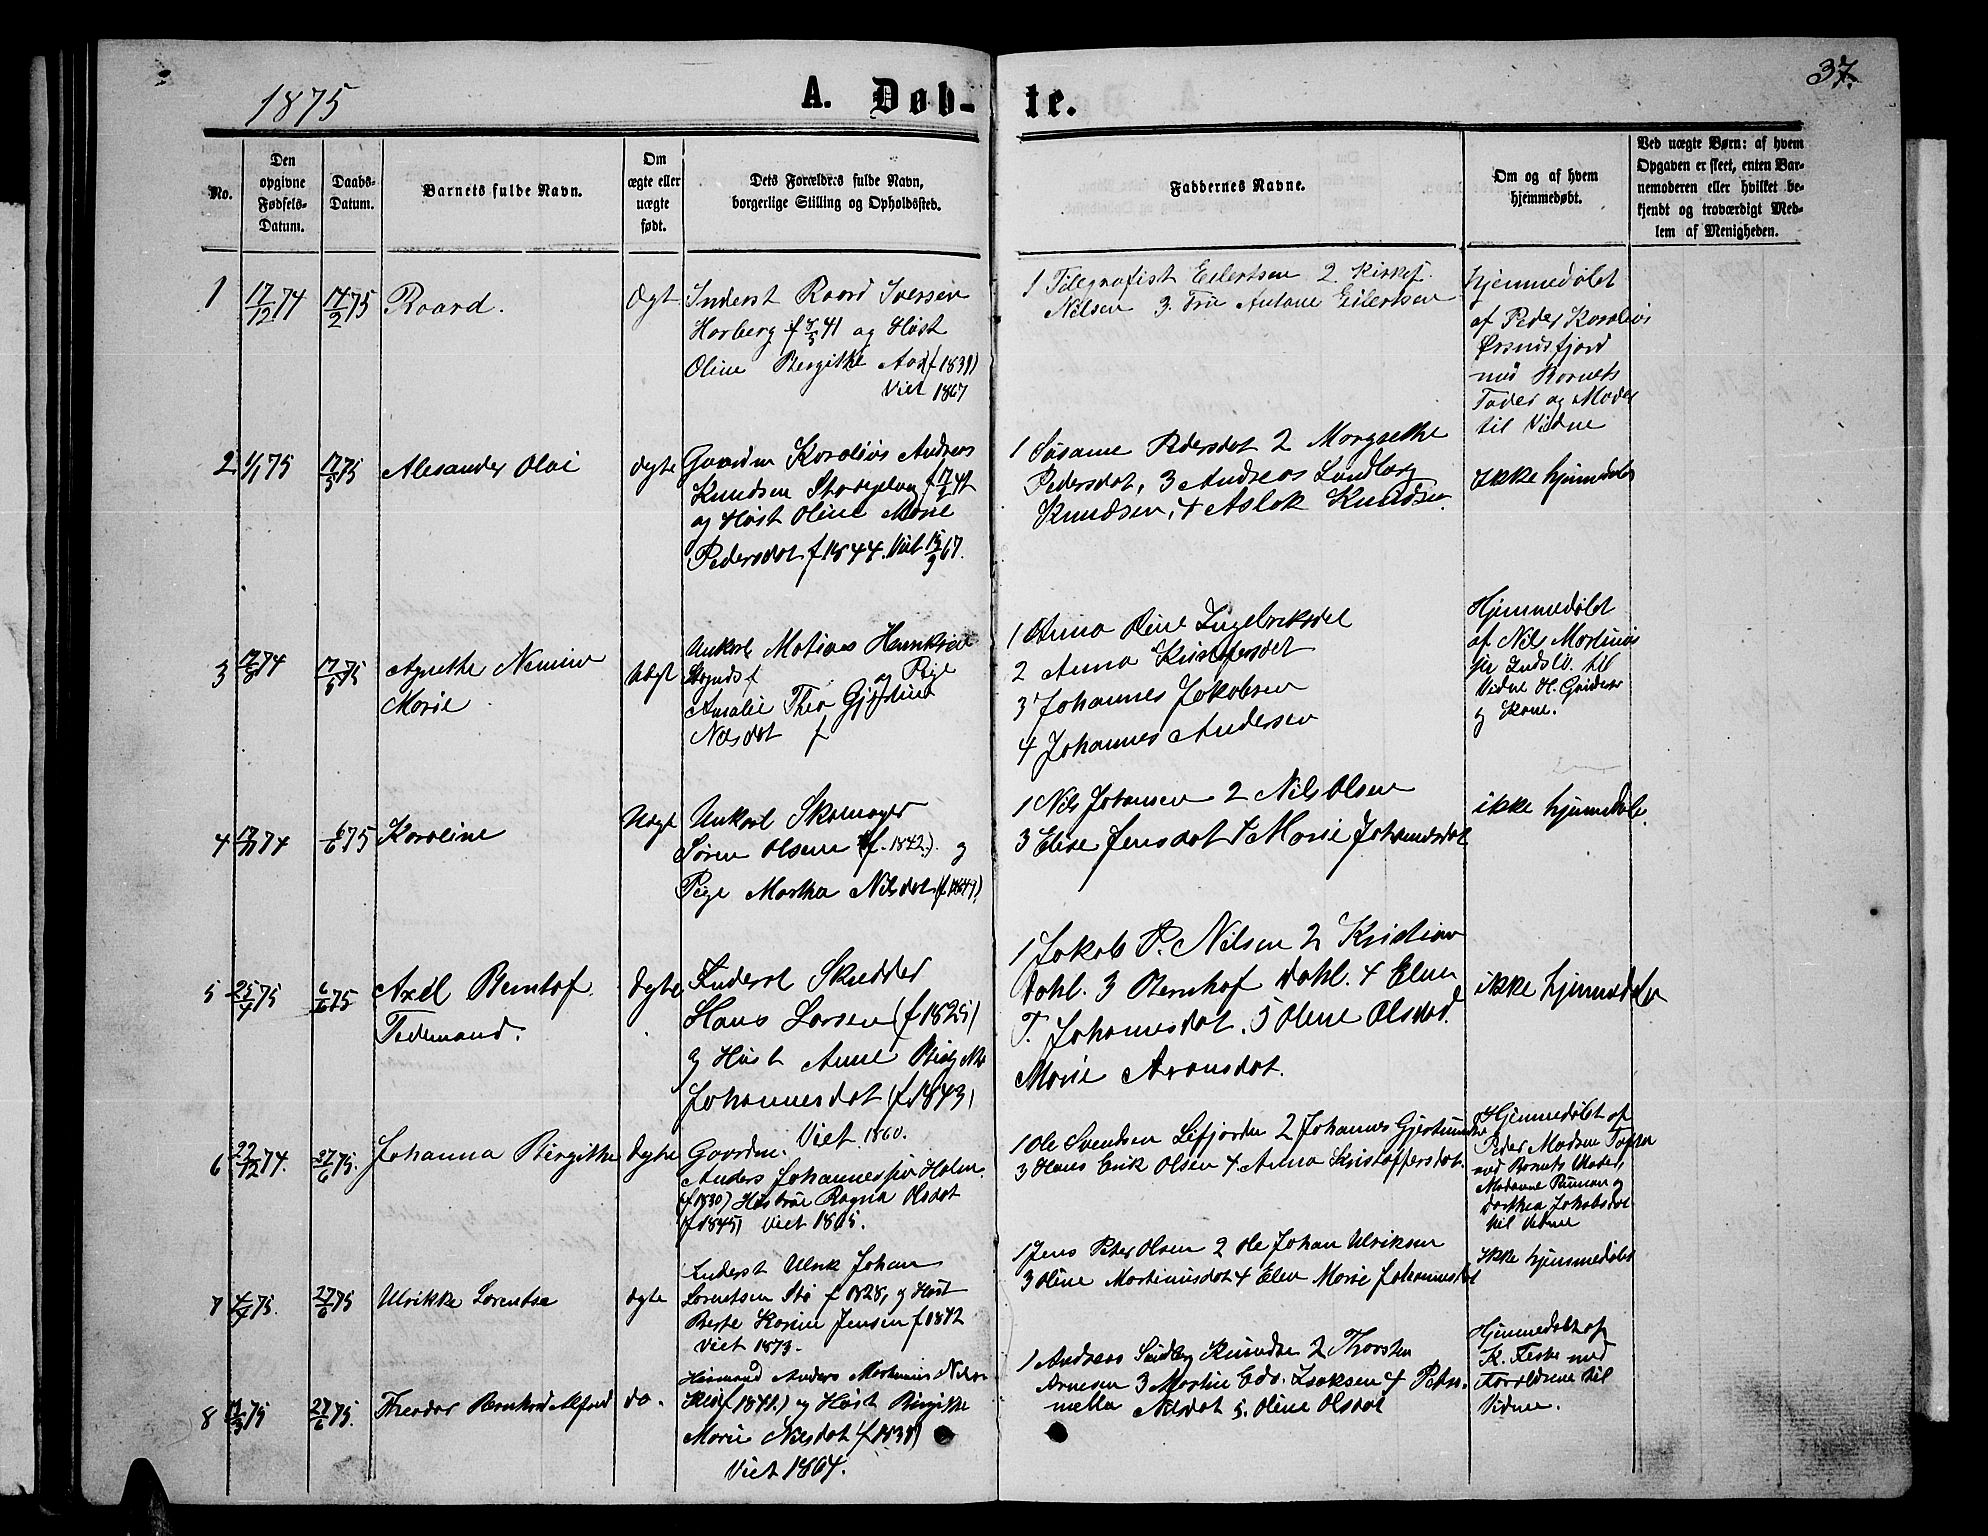 1875
A. Døb-
te.
37.
No.
Den
opgivne
Fødsels-
Datum.
Daabs-
Datum.
Barnets fulde Navn.
Om
ægte eller
uægte
født.
Dets Forældres fulde Navn,
borgerlige Stilling og Opholdssted.
Faddernes Navne.
Om og af hvem
hjemmedøbt.
Ved uægte Børn: af hvem
Opgaven er skeet, enten Bar-
nemoderen eller hvilket be-
kjendt og troværdigt Med-
lem af Menigheden.
1 17/12 74 14/2 75 Roard. Ægt
Inderst Roard Iversen
Horberg f 41 og Høst
Oline Bergitke (f 1839)
Viet 1867
1 Telegrafist Eilertsen 2 Kirkes.
Nilsen 3. Fru Antane Eilertsen
Hjemmedøbt
af Peder Korolius
Øksnisfjord
med Bornets
Fader og Moder
til Vidne
2 1/1 75 17/5 75 Alesander Olai ægte
Gaardm Korolius Andreas
Knudsen f 41
og Høst Oline Marie
Pedersdot f 1844. Viet 67.
1 Susanne Pedersdot 2 Morgrethe
Pedersdot, 3 Andreas Lundberg
Knudsen, 4 Aslok Knudsen.
Ikke hjemmedøbt
3 74 17/5 75 Agnethe Nemine
Marie Uægt
Unkarl Matias Henriksen
og Pige
Amalie Thea
Nilsdot f
1 Anna Oline Ingebriktsdot
2 Anna Kristofersdot
3 Johannes Jakobsen
4 Johannes Andersen
Hjemmedøbt
af Nils Mortinus
til
Vidne H.
og Kone.
4 74 6/6 75 Karoline Uægt
Unkarl Skomager
Søren Olsen (f. 1842.) og
Pige Martha Nilsdot. (f 1849)
1 Nils Johansen 2 Nils Olsen
3 Elise Jensdot 4 Marie Johannesdot
ikke hjemmedøbt.
5 25/4 75 6/6 75 Axel Berntof
Tidemand. Ægte
Inderst Skredder
Hans Larsen (f 1825)
og Høst Anne
Johannesdot (f 1843)
Viet 1860.
1 Jakob P. Nilsen 2 Kristian
Dahl. 3 Bernhof Dahl. 4 Elen
T. Johannesdot. 5 Oline Olsdot.
Marie Aronsdot.
ikke hjemmedøbt
6 22/12 74. 27/6 75. Johanna Birgitte Ægte
Gaardm.
Anders Johannessen Holm.
(f 1830) Hustrue Ragna Olsdot
(f 1845) Viet 1865.
1 Ole Svendsen Lifjorden 2 Johannes
3 Hans Erik Olsen 4 Anna Kristoffersdot.
Hjemmedøbt af
Peder Madsen
med Bornets Moder,
Madame og
Dorthea Jakobsdot
til Vidne
7 4/4 75. 27/6 75 Ulrikke Lorentse ægte
Inderst Ulrik Johan
Lorentsen Stø f 1828, og Høst
Berte Korine Jensen f 1842
Viet 1873.
1 Jens Peter Olsen 2 Ole Johan Ulriksen
3 Oline Martinusdot 4 Elen Marie Johannesdot
Ikke hjemmedøbt
8 75 27/6 75. Theodor Alfred do.
Husmand Anders Martinus Nilsen
(f 1841.) og Høst Birgitte
Marie Nilsdot (f 1838)
Viet 1864.
1 Andreas Knudsen 2 Thorsten
Arnesen 3 Martin Edv. Isaksen 4 Petri-
nella Nilsdot 5. Oline Olsdot
Hjemmedøbt af
K. med
Forældrene til
Vidne.